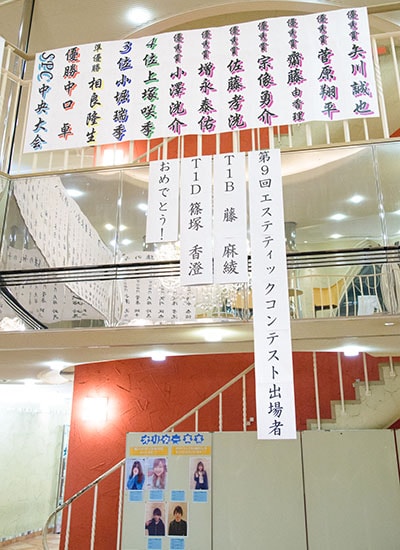 優秀賞 矢川誠也
優秀賞 菅原翔平
優秀賞 齋藤由香理
優秀賞 宗像勇介
優秀賞 佐藤孝洸
優秀賞 増永泰佑
優秀賞 小澤洸介
4位 上塚咲季
3位 小堀瑞季
準優勝 相良隆生
優勝 中口 卓
SPC中央大会
第9回エステティックコンテスト出場者
T1B 藤 麻綾
T1D 篠塚 香澄
おめでとう!
オリター